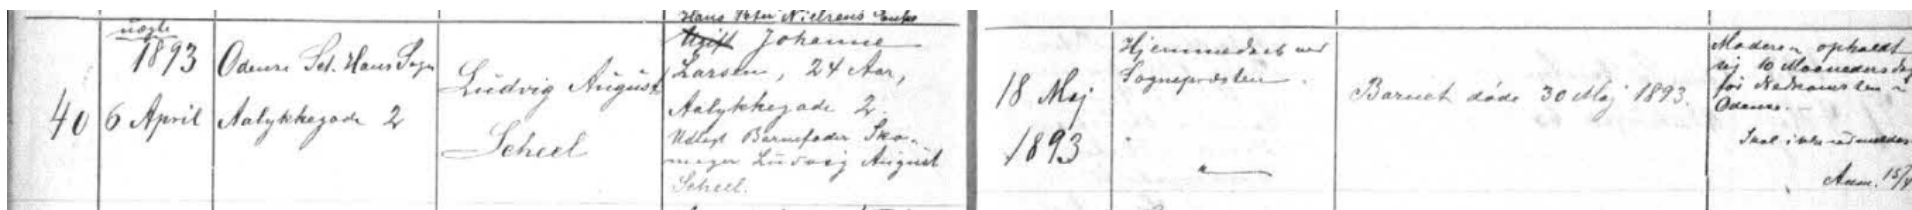 40
uægte
1893
6 April
Odense Sct. Hans Sogn
Aalykkegade 2
Ludvig August
Scheel
Hans Peter Nielsens Enke
Ugift Johanne
Larsen, 24 Aar,
Aalykkegade 2.
Udlagt Barnefader Sko-
mager Ludvig August
Scheel.
18 Maj
1893
Hjemmedøbt ved
Sognepræsten.
"
Barnet døde 30 Maj 1893.
Moderen opholdt
sig 10 Maanedersdag
før Nedkomsten i
Odense.
Skal ikke udmeldes
Anm. 15/4